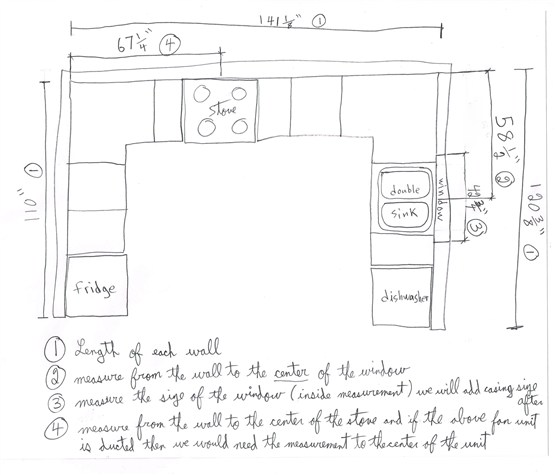 141 1/8" ①
67 1/4" ④
stove
58 1/2" ②
110" ①
double
sink
window
③
120 3/8" ①
fridge
dishwasher
① Length of each wall
② measure from the wall to the center of the window
③ measure the size of the window (inside measurement) we will add casing size after
④ measure from the wall to the center of the stove and if the above fan unit
is ducted then we would need the measurement to the center of the unit